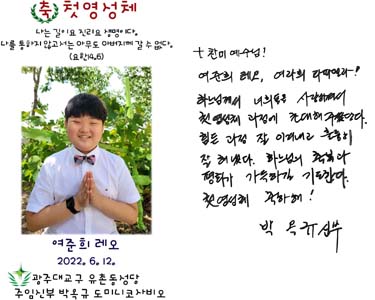 축 첫영성체
나는 길이요 진리요 생명이다.
나를 통하지 않고서는 아무도 아버지께 갈 수 없다.
(요한14,6)
여준희 레오
2022. 6. 12.
광주대교구 유촌동성당
주임신부 박옥규 도미니코사비오
+ 찬미 예수님!
여준희 레오,
하느님께서 너희들을 사랑하셔서
첫영성체 과정에 초대해 주셨단다.
힘든 과정 잘 이겨내고 훌륭히
잘 해냈다. 하느님의 축복과
평화가 가득하길 기도한다.
첫영성체 축하해!
박옥규 신부